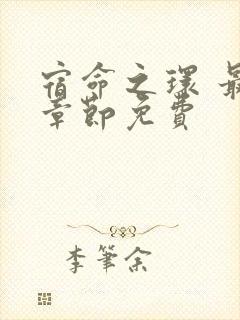 宿命之环 最
章节免费
李笔余